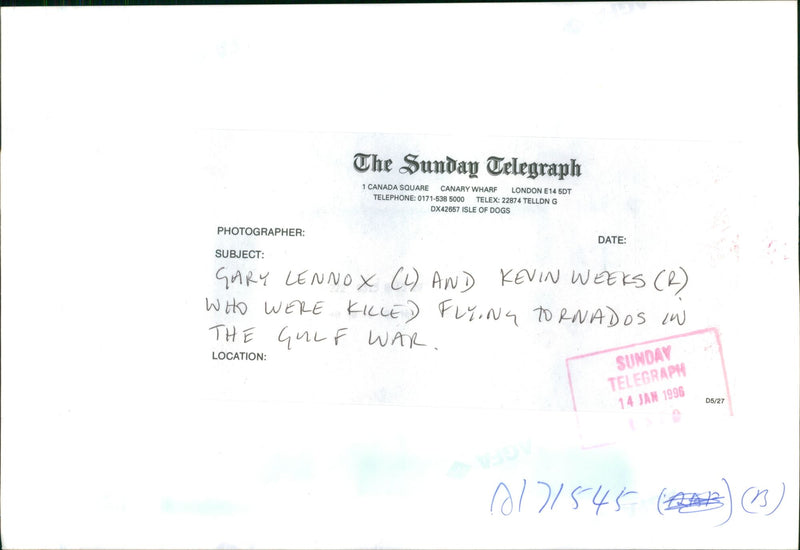 The Sunday Telegraph
1 CANADA SQUARE CANARY WHARF LONDON E14 5DT
TELEPHONE: 0171-538 5000 TELEX: 22874 TELLDN G
DX42657 ISLE OF DOGS
PHOTOGRAPHER:
DATE:
SUBJECT:
GARY LENNOX (L) AND KEVIN WEEKS (R)
WHO WERE KILLED FLYING TORNADOS IN
THE GULF WAR.
LOCATION:
SUNDAY
TELEGRAPH
14 JAN 1996
D5/27
A171545 (B)